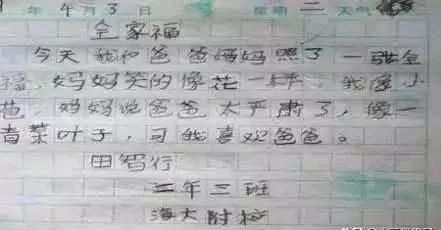 年 4月3日 星期 二 天气
全家福
今天我和爸爸妈妈照了一张全
福,妈妈笑的像花一样。我像小
妈妈说爸爸太严肃了,像一
青菜叶子,可我喜欢爸爸。
田智行
二年三班
海大附校